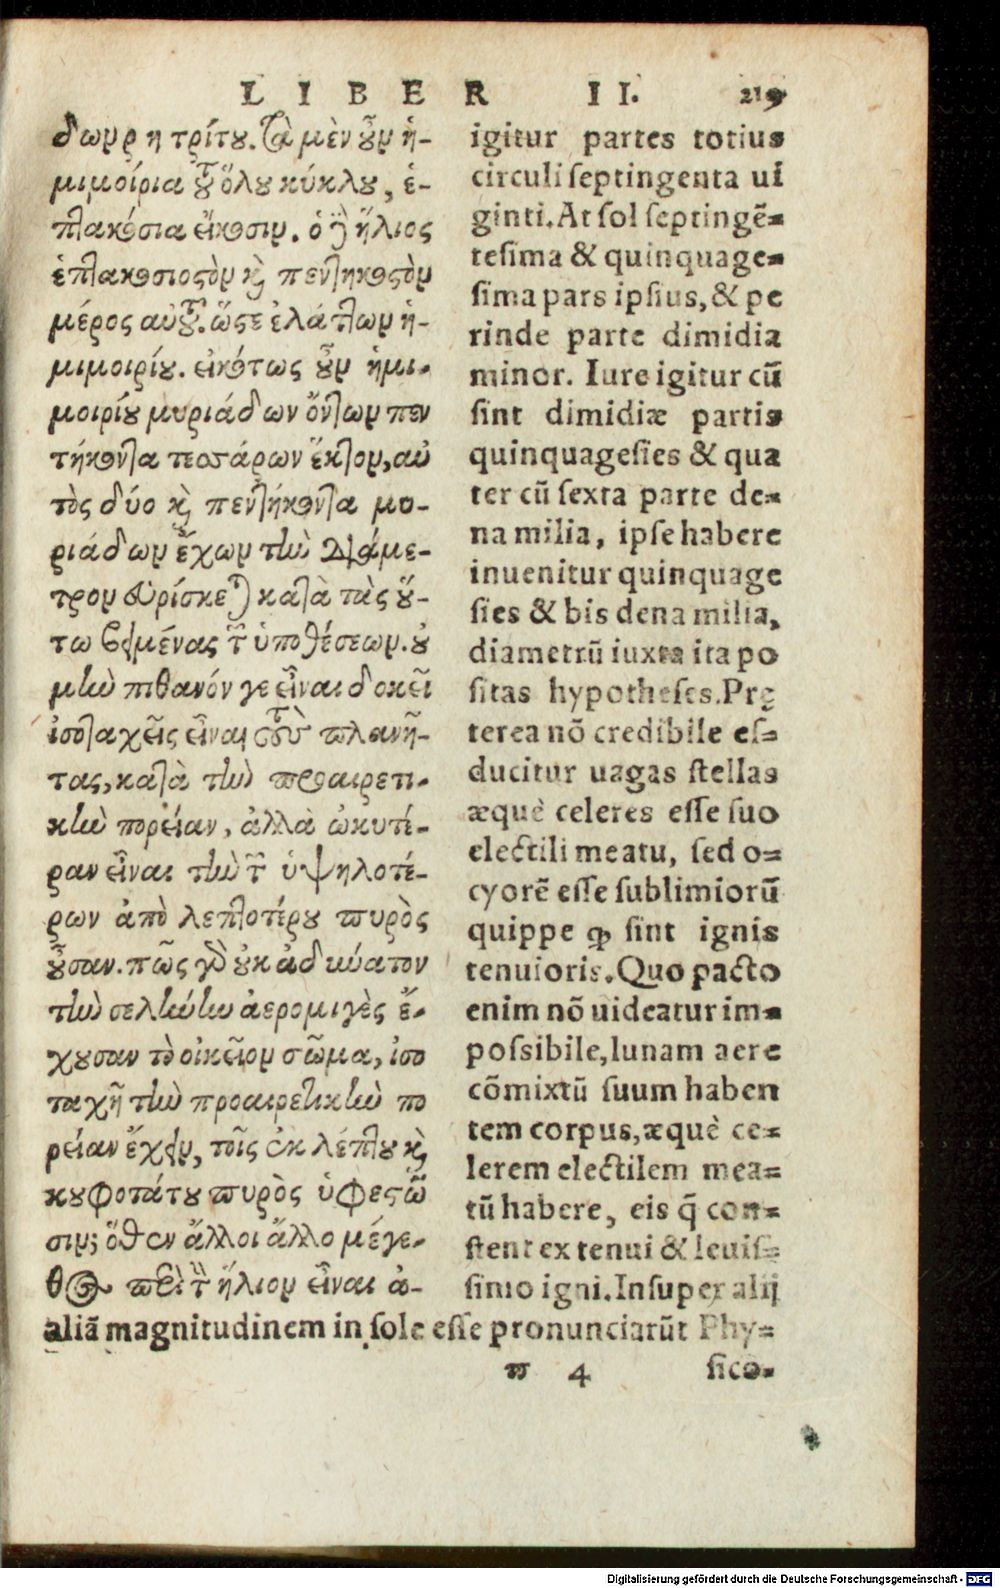 LIBER II. 219
δων ρ η τρίτυ. Τὰ μὲν οὖν ἡ-
μιμοίρια τοῦ ὅλου κύκλου, ἑ-
πτακόσια εἴκοσιν. ὁ δὲ ἥλιος
ἑπτακοσιοστὸν καὶ πεντηκοστὸν
μέρος αὐτοῦ. ὥστε ἐλάττων ἡ-
μιμοιρίου. εἰκότως οὖν ἡμι-
μοιρίου μυριάδων ὄντων πεν
τήκοντα τεσσάρων ἕκτον, αὐ
τὸς δύο καὶ πεντήκοντα μυ-
ριάδων ἔχων τὴν διάμε-
τρον εὑρίσκεται κατὰ τὰς οὕ-
τω θεμένας τῶν ὑποθέσεων. οὐ
μὴν πιθανόν γε εἶναι δοκεῖ
ἰσοταχεῖς εἶναι τοὺς πλανή-
τας, κατὰ τὴν προαιρετι-
κὴν πορείαν, ἀλλὰ ὠκυτέ-
ραν εἶναι τὴν τῶν ὑψηλοτέ-
ρων ἀπὸ λεπτοτέρου πυρὸς
οὖσαν. πῶς γὰρ οὐκ ἀδύνατον
τὴν σελήνην ἀερομιγὲς ἔ-
χουσαν τὸ οἰκεῖον σῶμα, ἰσο
ταχῆ τὴν προαιρετικὴν πο
ρείαν ἔχειν, τοῖς ἐκ λέπτου καὶ
κουφοτάτου πυρὸς ὑφεστῶ
σιν; ὅθεν ἄλλοι ἄλλο μέγε-
θος περὶ τὸν ἥλιον εἶναι ἀ-
igitur partes totius
circuli septingenta ui
ginti. At sol septingē-
tesima & quinquage-
sima pars ipsius, & pe
rinde parte dimidia
minor. Iure igitur cū
sint dimidiæ partis
quinquagesies & qua
ter cū sexta parte de-
na milia, ipse habere
inuenitur quinquage
sies & bis dena milia,
diametrū iuxta ita po
sitas hypotheses. Prę
terea nō credibile es-
ducitur uagas stellas
æquè celeres esse suo
electili meatu, sed o-
cyorē esse sublimiorū
quippe ꝙ sint ignis
tenuioris. Quo pacto
enim nō uideatur im-
possibile, lunam aere
cōmixtū suum haben
tem corpus, æquè ce-
lerem electilem mea-
tū habere, eis q̄ con-
stent ex tenui & leuis-
simo igni. Insuper alij
aliā magnitudinem in sole esse pronunciarūt Phy-
ϖ 4 sico-
Digitalisierung gefördert durch die Deutsche Forschungsgemeinschaft - DFG